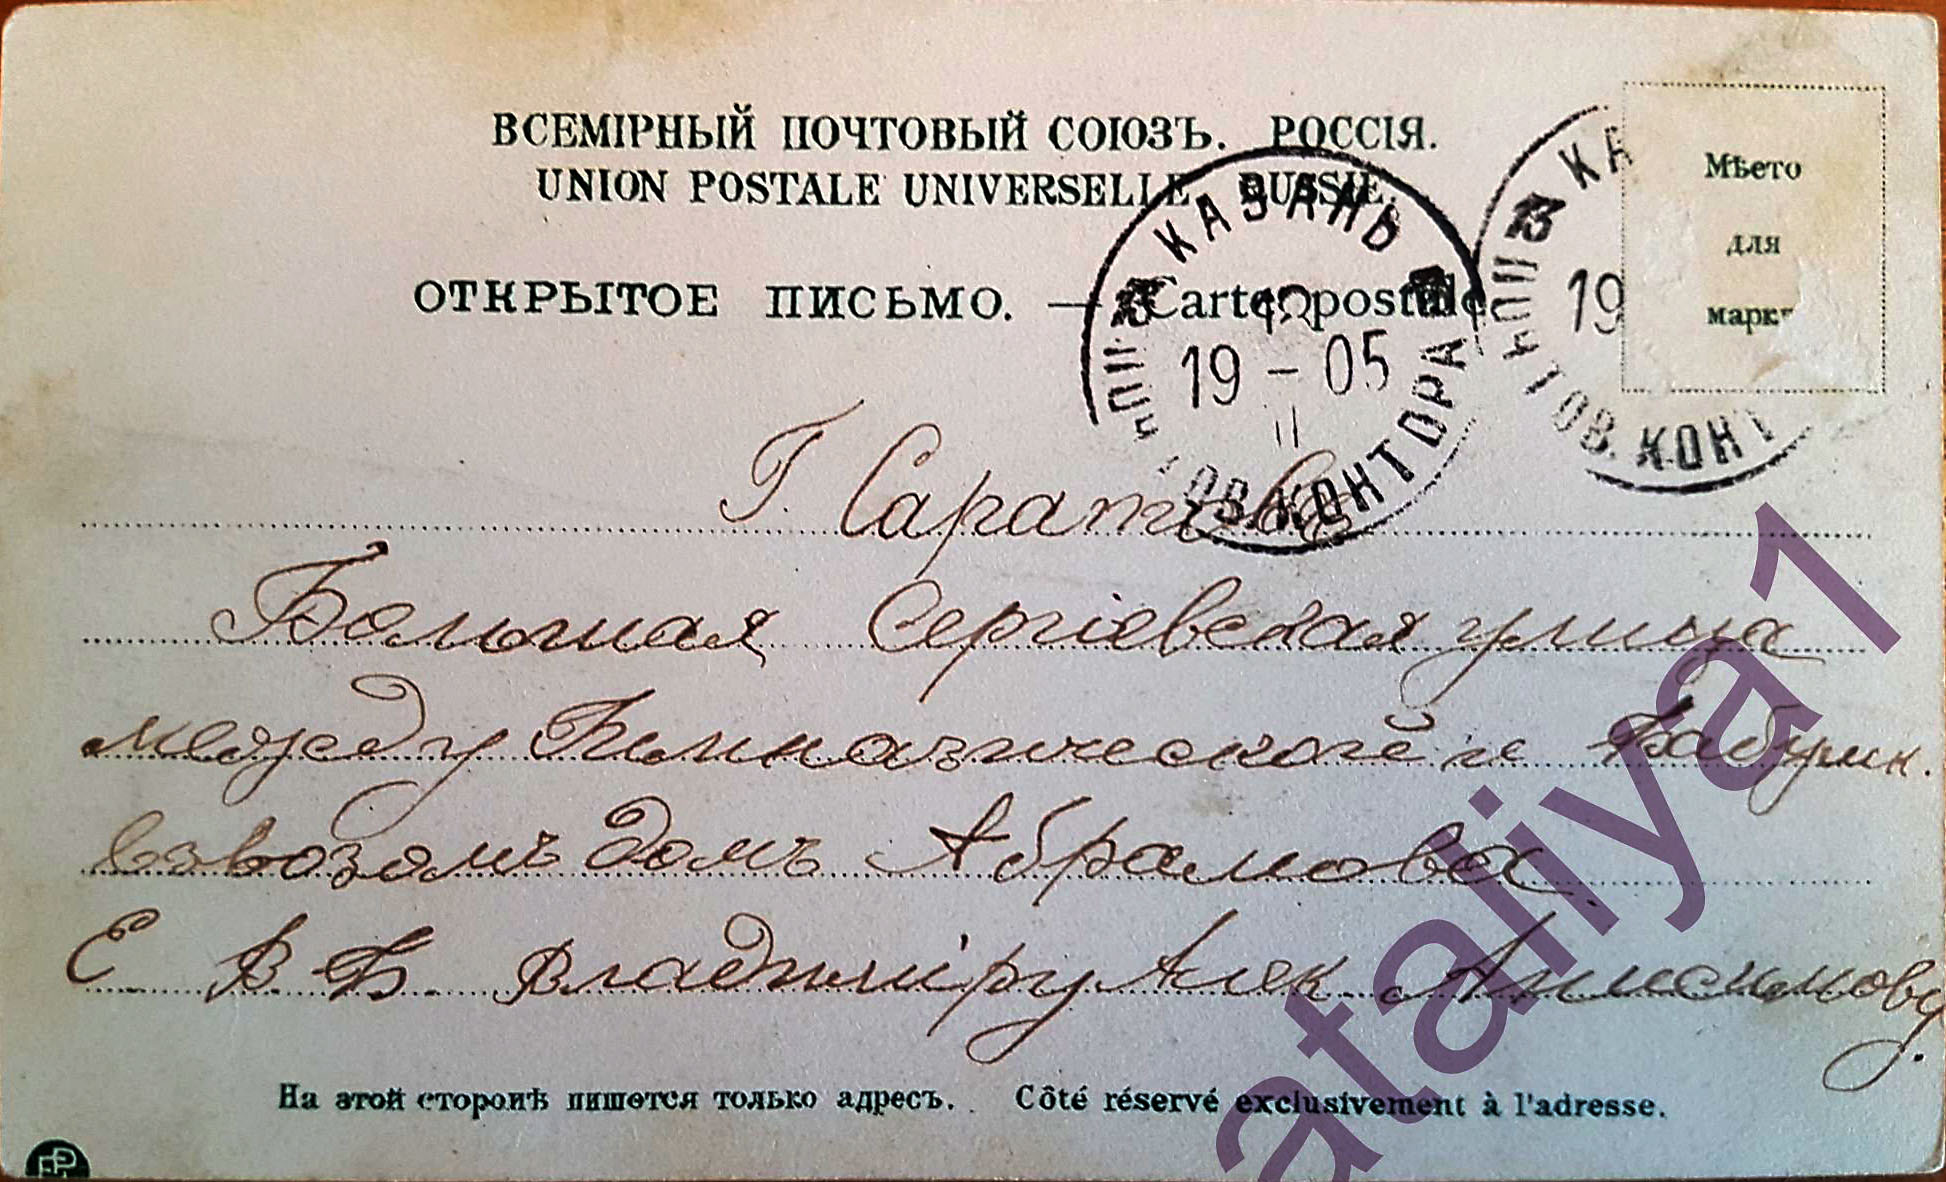 ВСЕМІРНЫЙ ПОЧТОВЫЙ СОЮЗЪ. РОССІЯ.
UNION POSTALE UNIVERSELLE. RUSSIE.
ОТКРЫТОЕ ПИСЬМО. — Carte postale
Мѣсто
для
марки
КАЗАНЬ
12
19 – 05
II
ПОЧТОВ. КОНТОРА
КА
19
ПОЧТОВ. КОНТ
Г. Саратовъ
Большая Сергіевская улица
между Гимназической и Бабушк.
взвозомъ домъ Абрамова
Е В Б Владиміру Алек Анисимову
На этой сторонѣ пишется только адресъ. Côté réservé exclusivement à l'adresse.
ataliya1